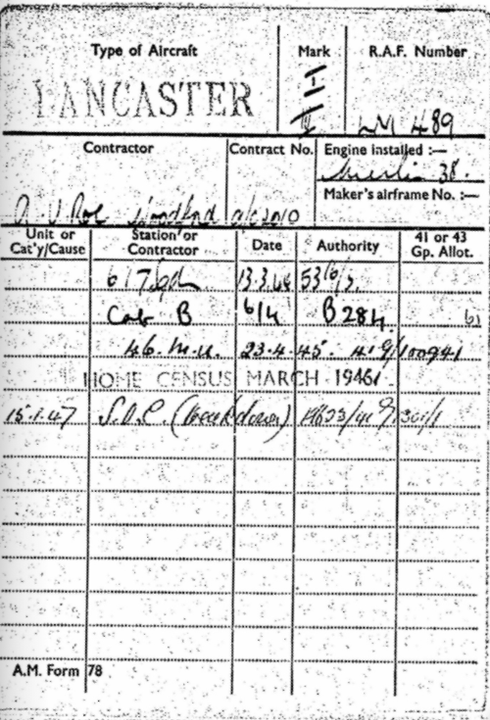 Type of Aircraft Mark R.A.F. Number
LANCASTER I III LM 489
Contractor Contract No. Engine installed :—
Merlin 38.
Maker's airframe No. :—
A V Roe Woodford a/c2010
Unit or Cat'y/Cause Station or Contractor Date Authority 41 or 43 Gp. Allot.
617 Sqdn 13.3.44
Cat B 6/4 B284
46. M.U. 23.4.45. 41 g/100941
HOME CENSUS MARCH 1946
15.1.47 S.O.C. (breakdown)
A.M. Form 78